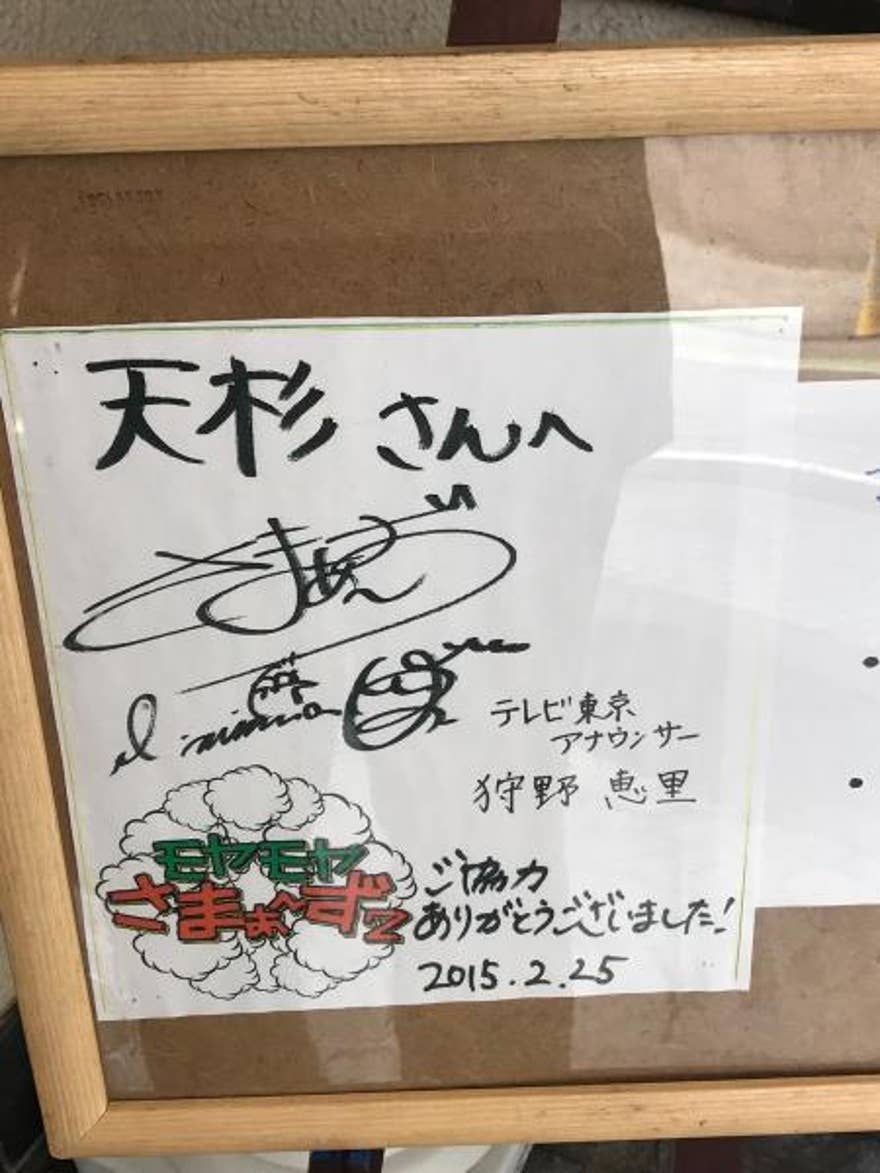 天杉さんへ
さまぁ～ず
テレビ東京
アナウンサー
狩野 恵里
モヤモヤ
さまぁ～ず2
ご協力
ありがとうございました!
2015.2.25